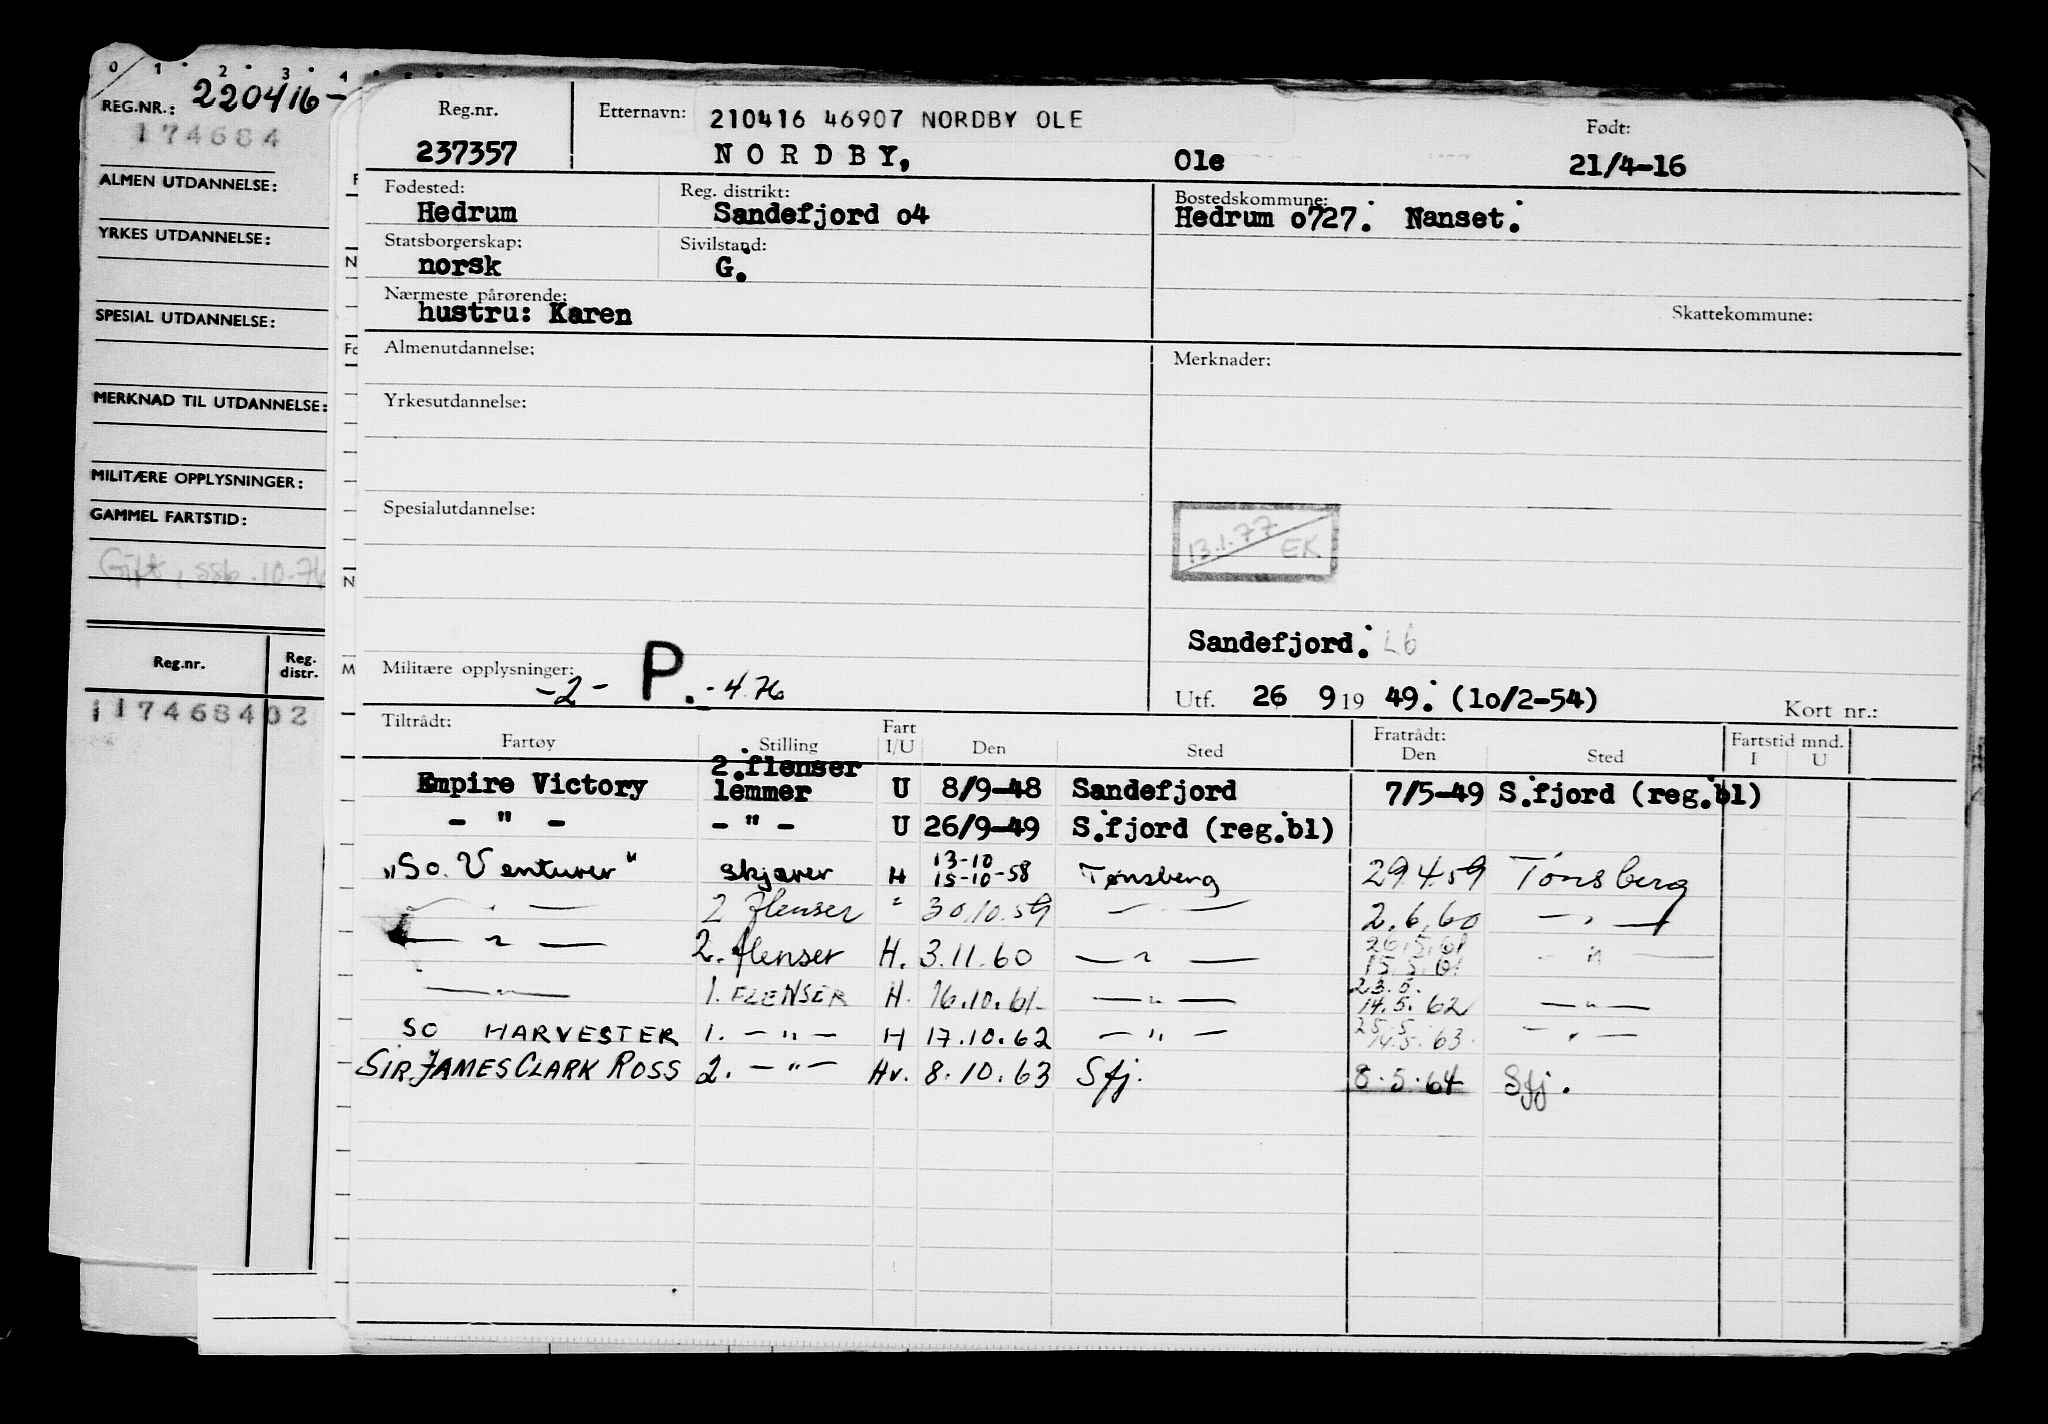 0 1 2 3 4
REG.NR.: 220416-
174684
ALMEN UTDANNELSE:
YRKES UTDANNELSE:
SPESIAL UTDANNELSE:
MERKNAD TIL UTDANNELSE:
MILITÆRE OPPLYSNINGER:
GAMMEL FARTSTID:
Gift, ssb. 10-76
Reg.nr. Reg. distr.
117468402
Reg.nr. Etternavn: 210416 46907 NORDBY OLE Født:
237357 NORDBY, Ole 21/4-16
Fødested: Reg. distrikt: Bostedskommune:
Hedrum Sandefjord o4 Hedrum o727. Nanset.
Statsborgerskap: Sivilstand:
norsk G.
Nærmeste pårørende: Skattekommune:
hustru: Karen
Almenutdannelse: Merknader:
Yrkesutdannelse:
Spesialutdannelse:
13.1.77 EK
Sandefjord. L6
Militære opplysninger: -2- P. -4.76
Utf. 26 9 19 49. (1o/2-54) Kort nr.:
Tiltrådt: Fart Fratrådt: Fartstid mnd.
Fartøy Stilling I/U Den Sted Den Sted I U
2.flenser
Empire Victory lemmer U 8/9-48 Sandefjord 7/5-49 S.fjord (reg.bl)
- " - - " - U 26/9-49 S.fjord (reg.bl)
13-10
"So. Venturer" skjærer H 15-10-58 Tønsberg 29.4.59 Tønsberg
— " — 2 flenser " 30.10.59 — " — 2.6.60 — " —
26.5.61
— " — 2. flenser H. 3.11.60 — " — 15.5.61 — " —
23.5.
— " — 1. FLENSER H. 16.10.61 — " — 14.5.62 — " —
25.5.
SO HARVESTER 1. — " — H 17.10.62 — " — 14.5.63. — " —
SIR JAMES CLARK ROSS 2. — " — Hv. 8.10.63 Sfj. 8.5.64 Sfj.